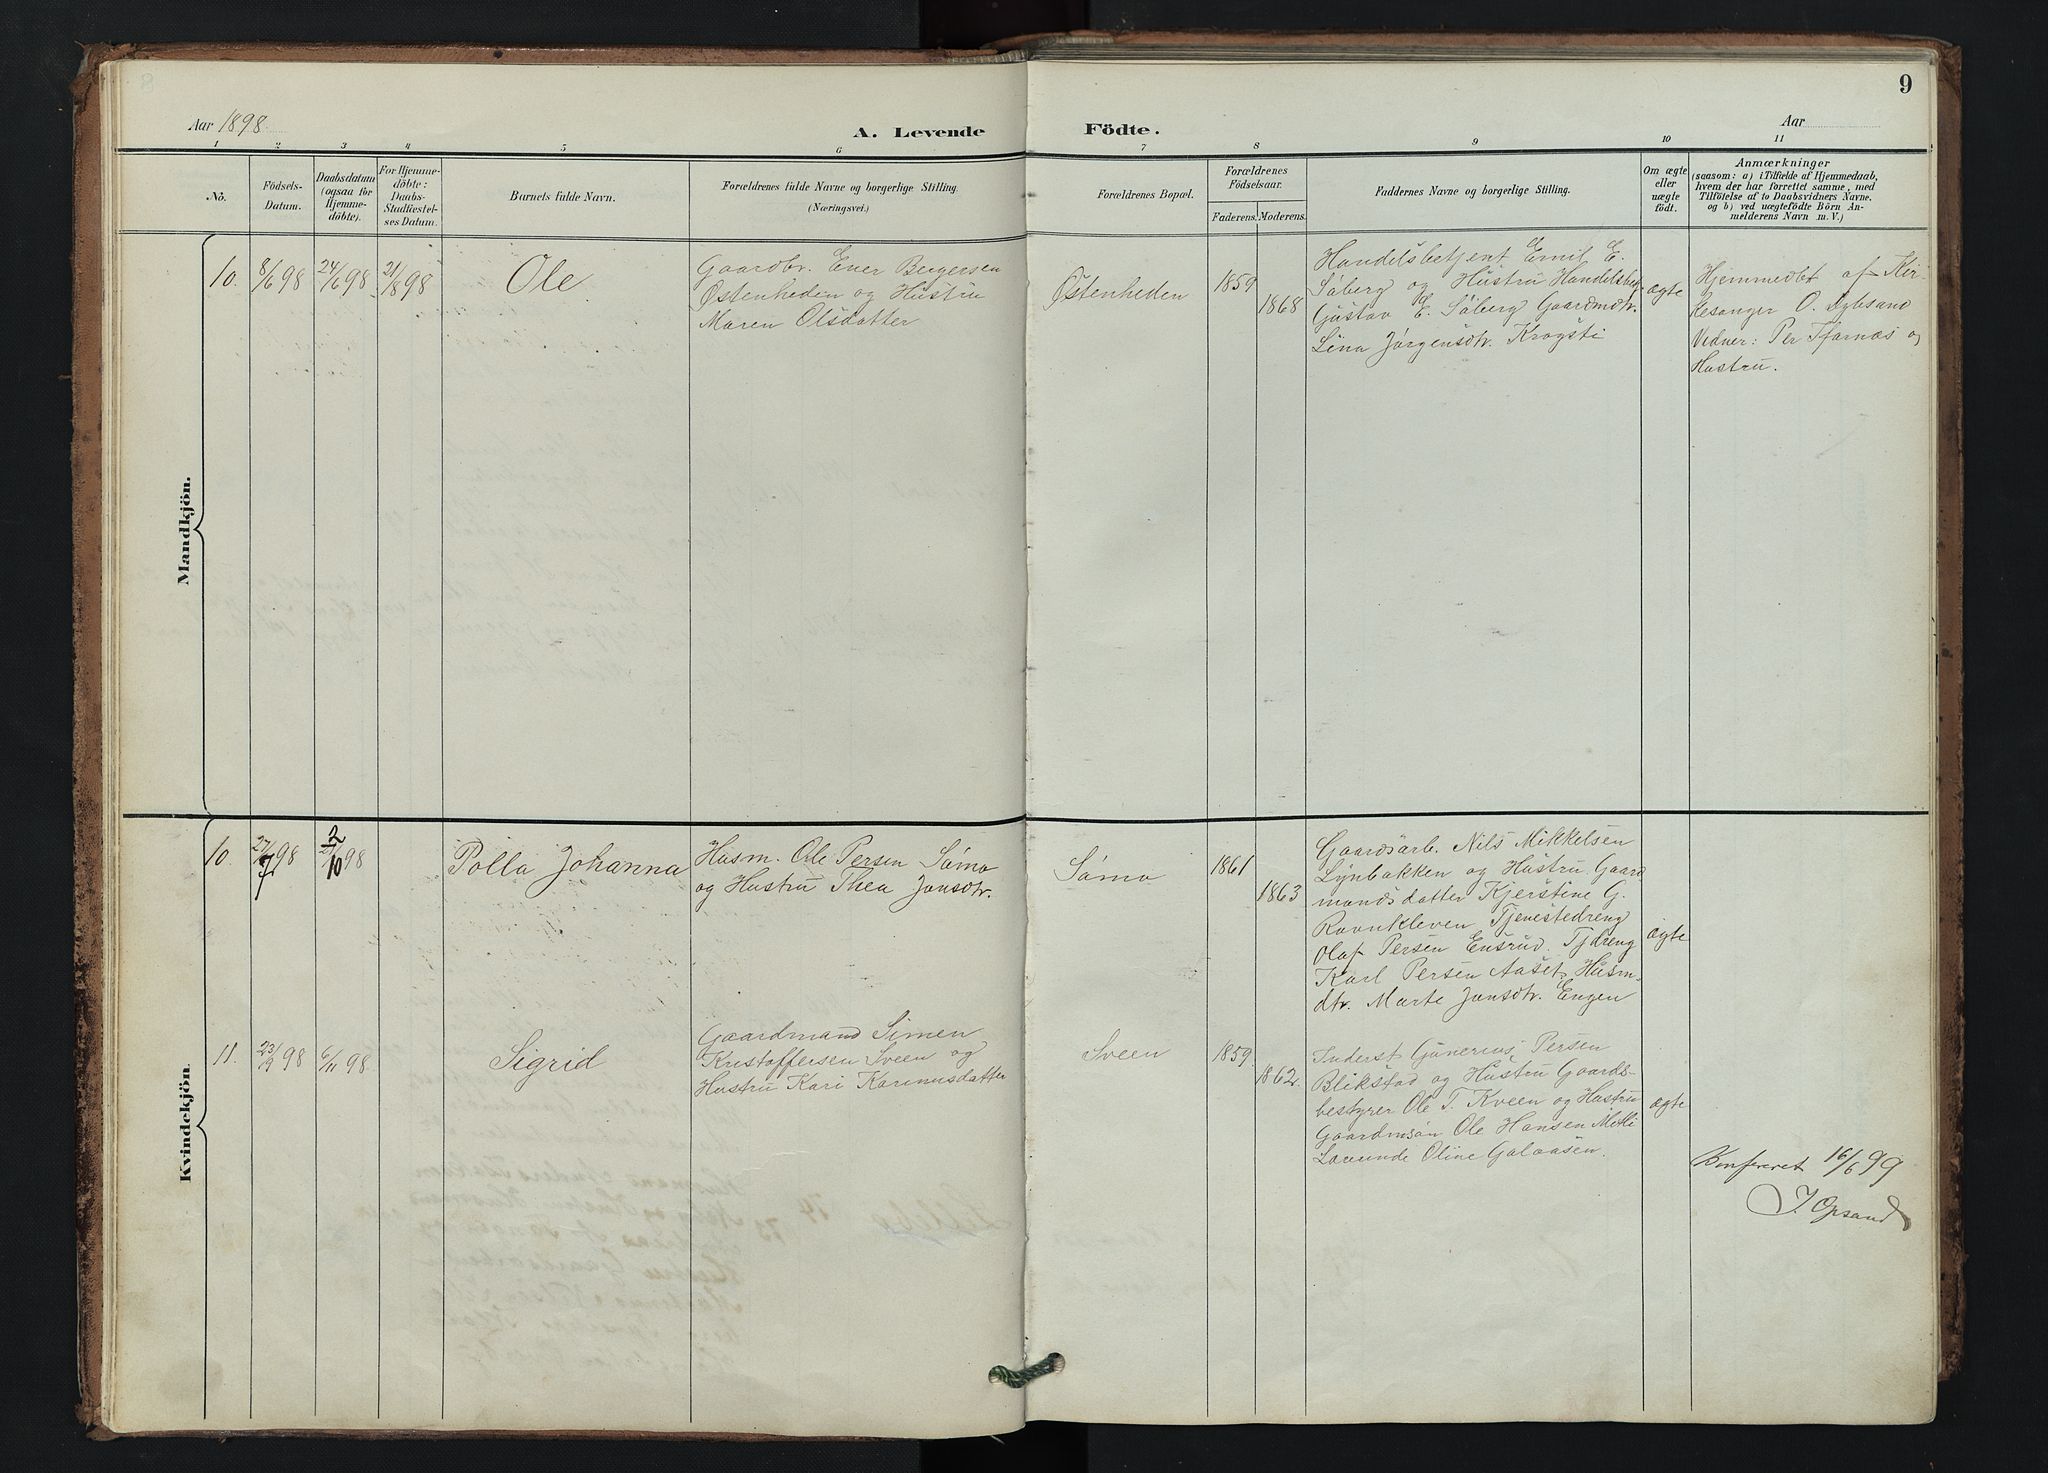 9
Aar 1898.
A. Levende Födte.
Aar
1 2 3 4 5 6 7 8 9 10 11
No.
Födsels-
Datum.
Daabsdatum
(ogsaa for
Hjemme-
döbte).
For Hjemme-
döbte:
Daabs-
Stadfæstel-
ses Datum.
Barnets fulde Navn.
Forældrenes fulde Navne og borgerlige Stilling.
(Næringsvei.)
Forældrenes Bopæl.
Forældrenes
Födselsaar.
Faderens. Moderens.
Faddernes Navne og borgerlige Stilling.
Om ægte
eller
uægte
födt.
Anmærkninger
(saasom: a) i Tilfælde af Hjemmedaab,
hvem der har forrettet samme, med
Tilföielse af to Daabsvidners Navne,
og b) ved uægtefödte Börn An-
melderens Navn m. V.)
Mandkjön.
10. 8/6 98 24/6 98 21/8 98
Ole
Gaardbr. Ener Bergersen
Østenheden og Hustru
Maren Olsdatter
Østenheden
1859
1868
Handelsbetjent Emil E.
Söberg og Hustru Handelsbetj.
Gustav E. Söberg Gaardmdtr.
Lina Jörgensdtr. Krogsti
ægte
Hjemmedbt af Kir-
kesanger O. Dybsand
Vidner: Per Tfarnæs og
Hustru.
Kvindekjön.
10. 27/7 98 2/10 98
Polla Johanna
Husm. Ole Persen Sömo
og Hustru Thea Jonsdtr.
Sömo
1861
1863
Gaardsarb. Nils Mikkelsen
Lynbakken og Hustru. Gaard
mandsdatter Kjerstine G.
Ravnkleven Tjenestedreng
Olaf Persen Ensrud. Tjdreng
Karl Persen Aaset, Husm-
dtr. Marte Jonsdtr. Engen
ægte
11. 23/9 98 6/11 98
Sigrid
Gaardmand Simen
Kristoffersen Sveen og
Hustru Kari Karinusdatter
Sveen
1859
1862
Inderst Gunerius Persen
Blikstad og Hustru Gaards-
bestyrer Ole T. Kveen og Hustru
Gaardmsön Ole Hansen Mitli
Lovunde Oline Galaasen.
ægte
Konfereret 16/6 99
J. Opsand